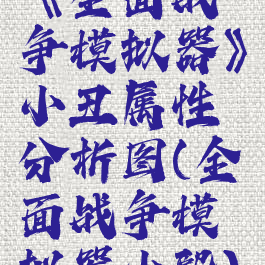 《全面战
争模拟器》
小丑属性
分析图(全
面战争模
拟器小)